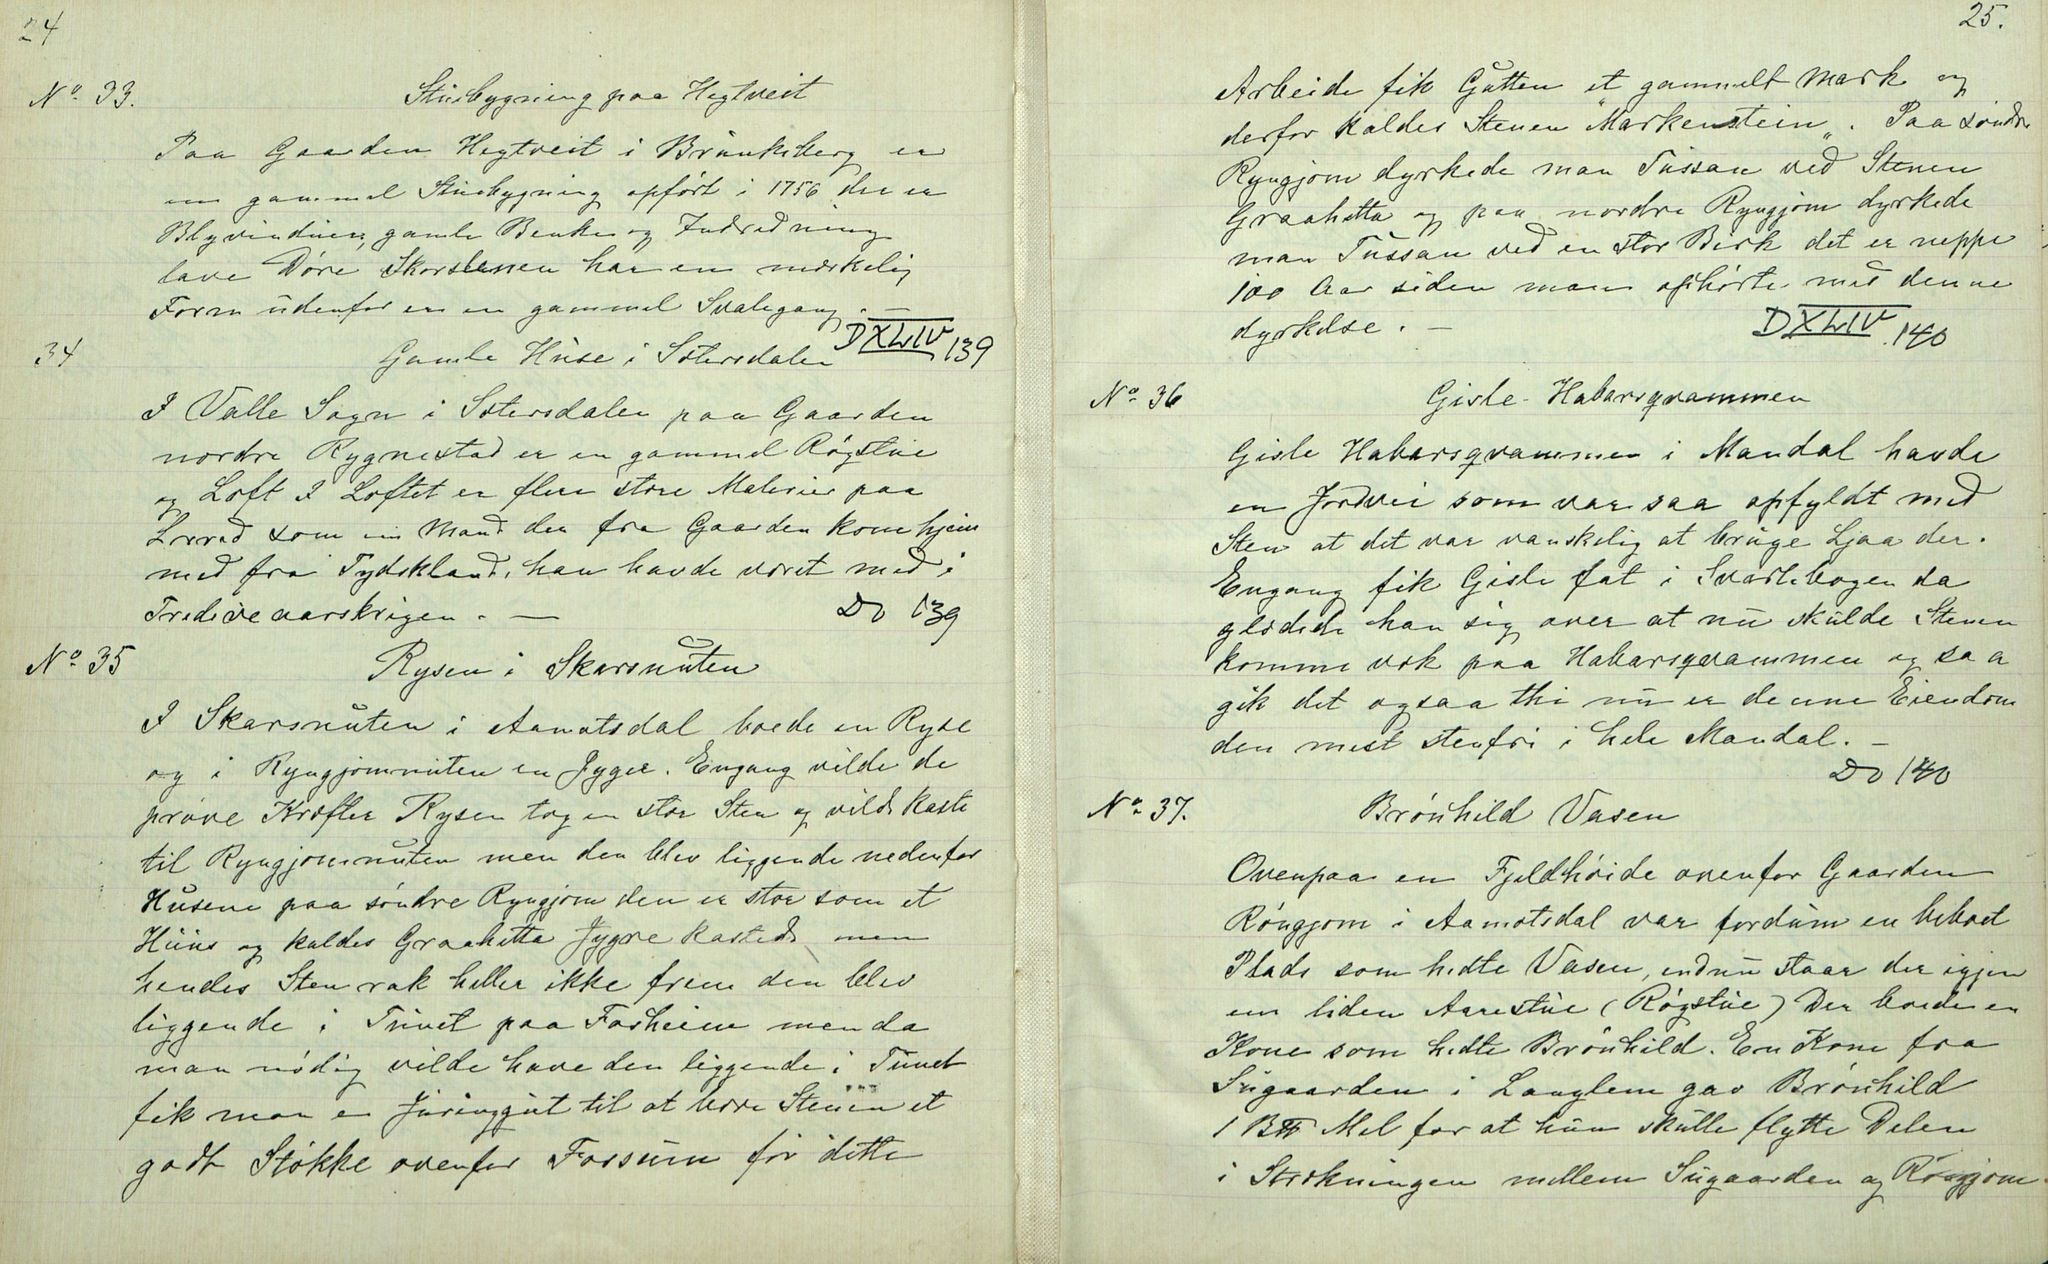 24
No 33. Stuebygning paa Hegtveit
Paa Gaarden Hegtveit i Brunkeberg er
en gammel Stuebygning opført i 1756 der er
Blyvinduer, gamle Benke og Indredning
lave Døre Skorstenen har en merkelig
Form udenfor er en gammel Svalegang. —
DXLIV 139
34 Gamle Huse i Sætersdalen
I Valle Sogn i Sætersdalen paa Gaarden
nordre Rygnestad er en gammel Røgstue
og Loft I Loftet er flere store Malerier paa
Lerred som en Mand der fra Gaarden kom hjem
med fra Tydskland, han havde været med i
Tredive aarskrigen. — Do 139
No 35 Rysen i Skarsnuten
I Skarsnuten i Aamotsdal boede en Ryse
og i Ryngjomnuten en Jyger. Engang vilde de
prøve Kræfter Rysen tog en stor Sten og vilde kaste
til Ryngjomnuten men den blev liggende nedenfor
Husene paa søndre Ryngjom den er stor som et
Huus og kaldes Graahetta Jygre kastede men
hendes Sten rak heller ikke frem den blev
liggende i Tunet paa Forheim men da
man nødig vilde have den liggende i Tunet
fik man en Gut til at bære Stenen et
godt Støkke ovenfor før dette
25.
Arbeide fik Gutten et gammelt Mark og
derfor kaldes Stenen "Markenstein". Paa søndre
Ryngjom dyrkede man Tussan ved Stenen
Graahetta og paa nordre Ryngjom dyrkede
man Tussan ved en stor Birk det er neppe
100 Aar siden man ophørte med denne
dyrkelse. — DXLIV 140
No 36 Gisle Habarsqvammen
Gisle Habarsqvammen i Mandal havde
en Jordvei som var saa opfyldt med
Sten at det var vanskelig at bruge Ljaa der.
Engang fik Gisle fat i Svartebogen da
glædede han sig over at nu skulde Stenen
komme væk paa Habarsqvammen og saa
gik det ogsaa thi nu er denne Eiendom
den mest stenfri i hele Mandal. —
Do 140
No 37. Brønhild Vasen
Ovenpaa en Fjeldhøide ovenfor Gaarden
Røngjom i Aamotsdal var fordum en beboet
Plads som hedte Vasen, endnu staar der igjen
en liden Aarestue (Røgstue) Der boede en
Kone som hedte Brønhild. En Kone fra
Sugaarden i Langlem gav Brønhild
1 Mel for at hun skulle flytte Delen
i Strækningen mellem Sugaarden og Røngjom.